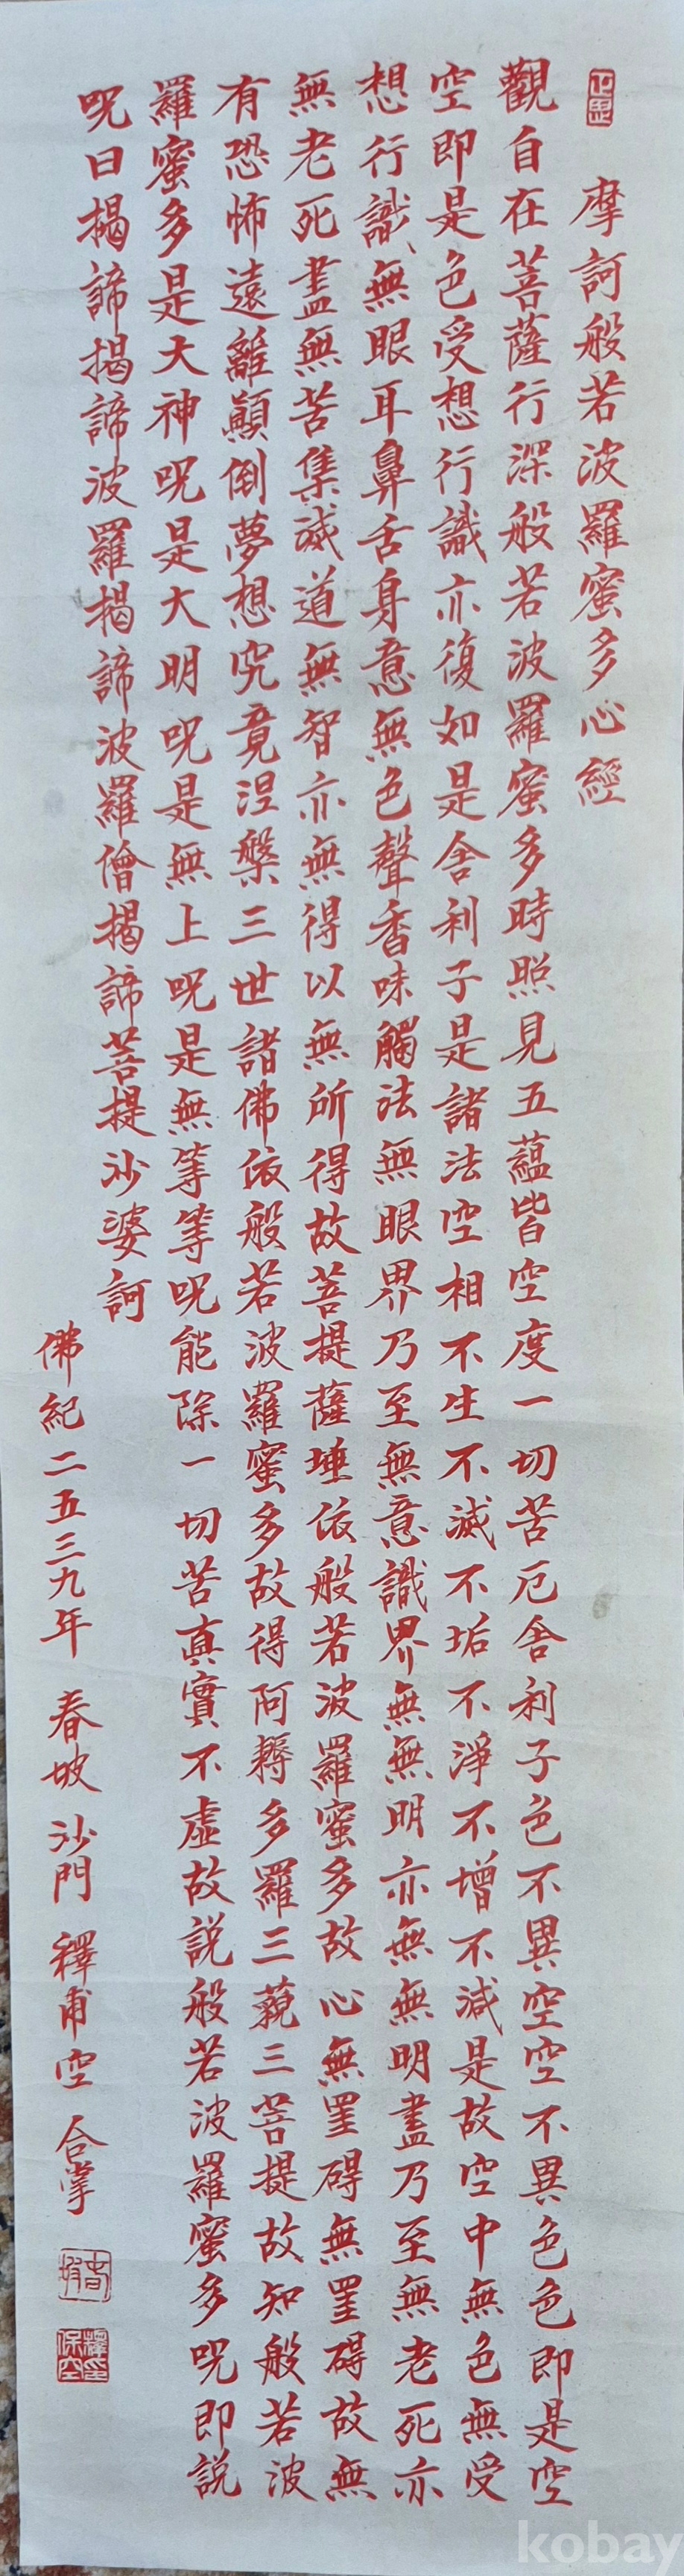 摩訶般若波羅蜜多心經
觀自在菩薩行深般若波羅蜜多時照見五蘊皆空度一切苦厄舍利子色不異空空不異色色即是空
空即是色受想行識亦復如是舍利子是諸法空相不生不滅不垢不淨不增不減是故空中無色無受
想行識無眼耳鼻舌身意無色聲香味觸法無眼界乃至無意識界無無明亦無無明盡乃至無老死亦
無老死盡無苦集滅道無智亦無得以無所得故菩提薩埵依般若波羅蜜多故心無罣碍無罣碍故無
有恐怖遠離顛倒夢想究竟涅槃三世諸佛依般若波羅蜜多故得阿耨多羅三藐三菩提故知般若波
羅蜜多是大神呪是大明呪是無上呪是無等等呪能除一切苦真實不虛故説般若波羅蜜多呪即説
呪曰揭諦揭諦波羅揭諦波羅僧揭諦菩提沙婆訶
佛紀二五三九年 春坡 沙門 釋甫空 合掌
kobay